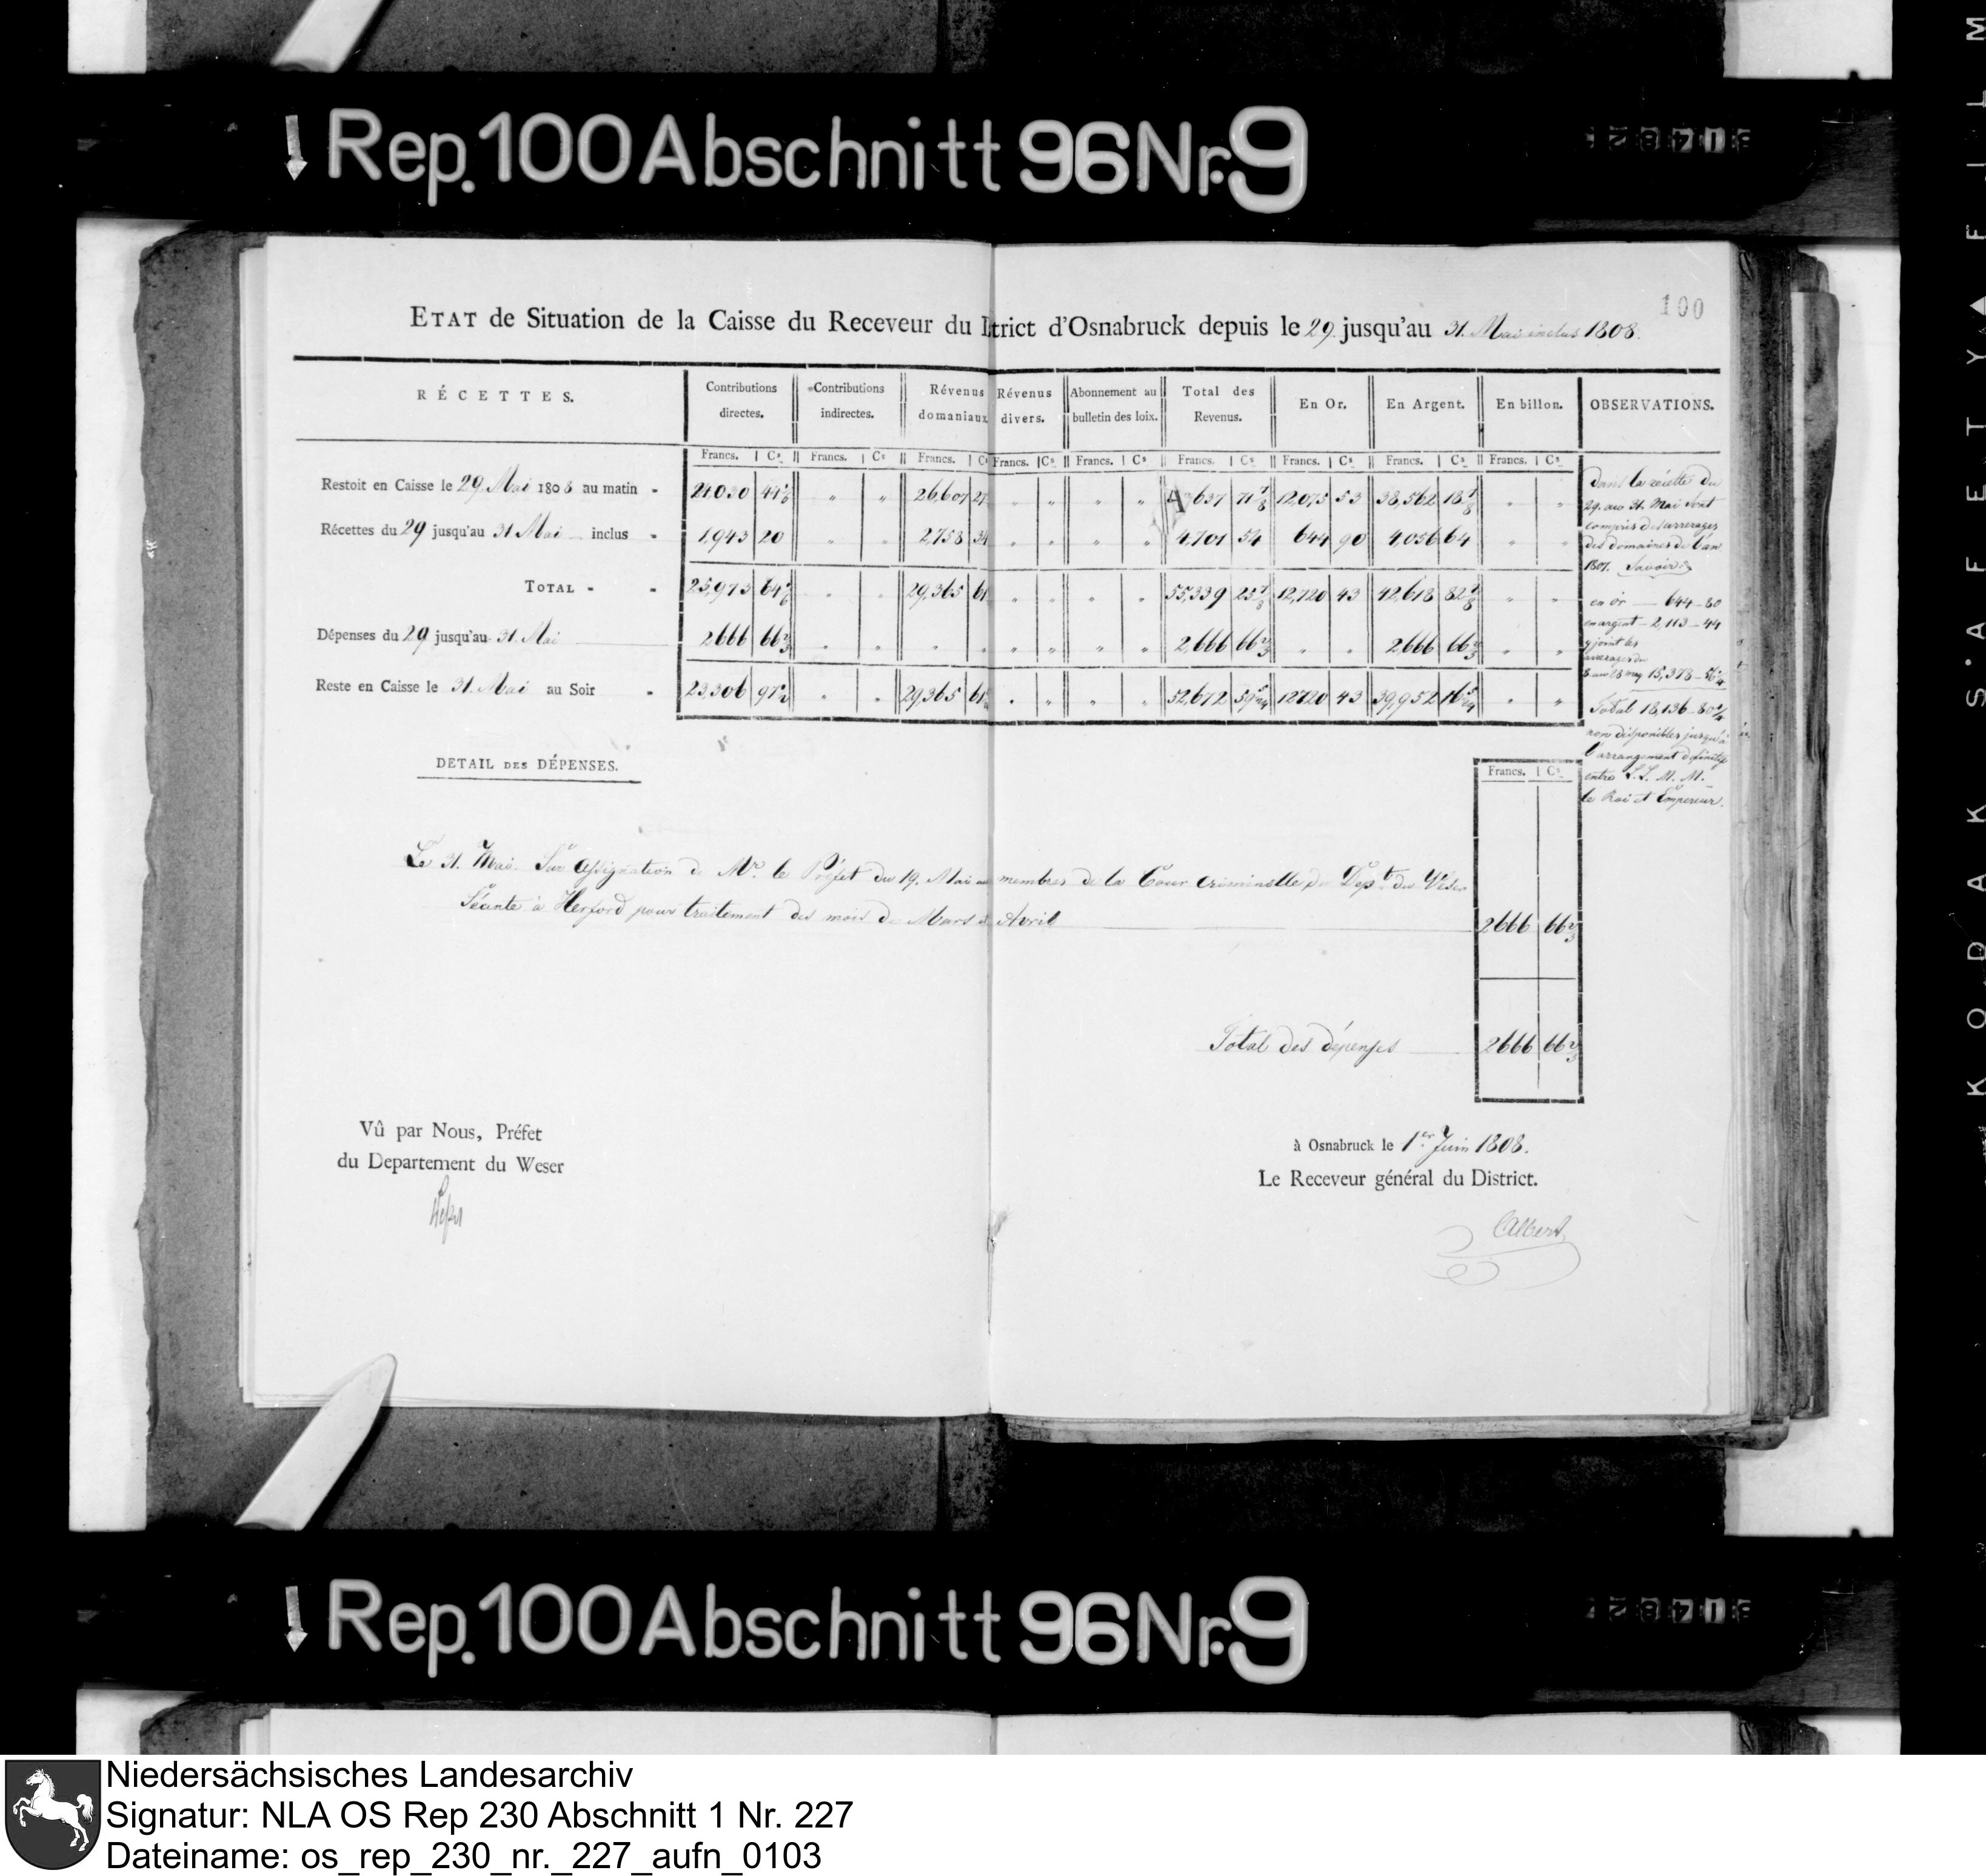 Rep. 100 Abschnitt 96 Nr. 9
100
ETAT de Situation de la Caisse du Receveur du trict d'Osnabruck depuis le 29. jusqu'au 31. Mai inclus 1808.
RÉCETTES. Contributions directes. Contributions indirectes. Révenus domaniaux Révenus divers. Abonnement au bulletin des loix. Total des Revenus. En Or. En Argent. En billon. OBSERVATIONS.
Francs. Cs Francs. Cs Francs. Cs Francs. Cs Francs. Cs Francs. Cs Francs. Cs Francs. Cs Francs. Cs
Restoit en Caisse le 29. Mai 1808 au matin - 24030 44 " " 26607 27 " " " " 637 71 7/8 12,075 53 38,562 18 " "
Récettes du 29 jusqu'au 31 Mai inclus - 1,943 20 " " 2,758 34 " " " " 4,701 54 644 90 4,056 64 " "
TOTAL - - 25,973 64 " " 29,365 61 " " " " 55,339 25 7/8 12,720 43 42,618 82 " "
Dépenses du 29 jusqu'au 31. Mai 2666 66 2/3 " " " " " " " " 2,666 66 2/3 " " 2666 66 2/3 " "
Reste en Caisse le 31. Mai au Soir - 23,306 97 " " 29,365 61 " " " " 52,672 59 12720 43 39,952 16 " "
Dans la récette du
29. au 31. Mai sont
compris des arrerages
des domaines de l'an
1807. Savoir:
en or — 644 - 80
en argent — 2,113 - 44
y joint les
arrerages du
15,378 - 56
Total 18,136 - 80
non disponibles jusqu'à
l'arrangement definitif
entre L.L. M.M.
le Roi et Empereur.
DETAIL DES DÉPENSES.
Francs. Cs
Le 31. Mai. Sur assignation de Mr. le Préfet du 19. Mai aux membres de la Cour criminelle du Dept. du Weser
Séante à Herford pour traitement des mois de Mars & Avril 2666 66 2/3
Total des dépenses 2666 66 2/3
Vû par Nous, Préfet
du Departement du Weser
à Osnabruck le 1er. Juin 1808.
Le Receveur général du District.
Albert
Rep. 100 Abschnitt 96 Nr. 9
KODAK SAFETY FILM
Niedersächsisches Landesarchiv
Signatur: NLA OS Rep 230 Abschnitt 1 Nr. 227
Dateiname: os_rep_230_nr._227_aufn_0103